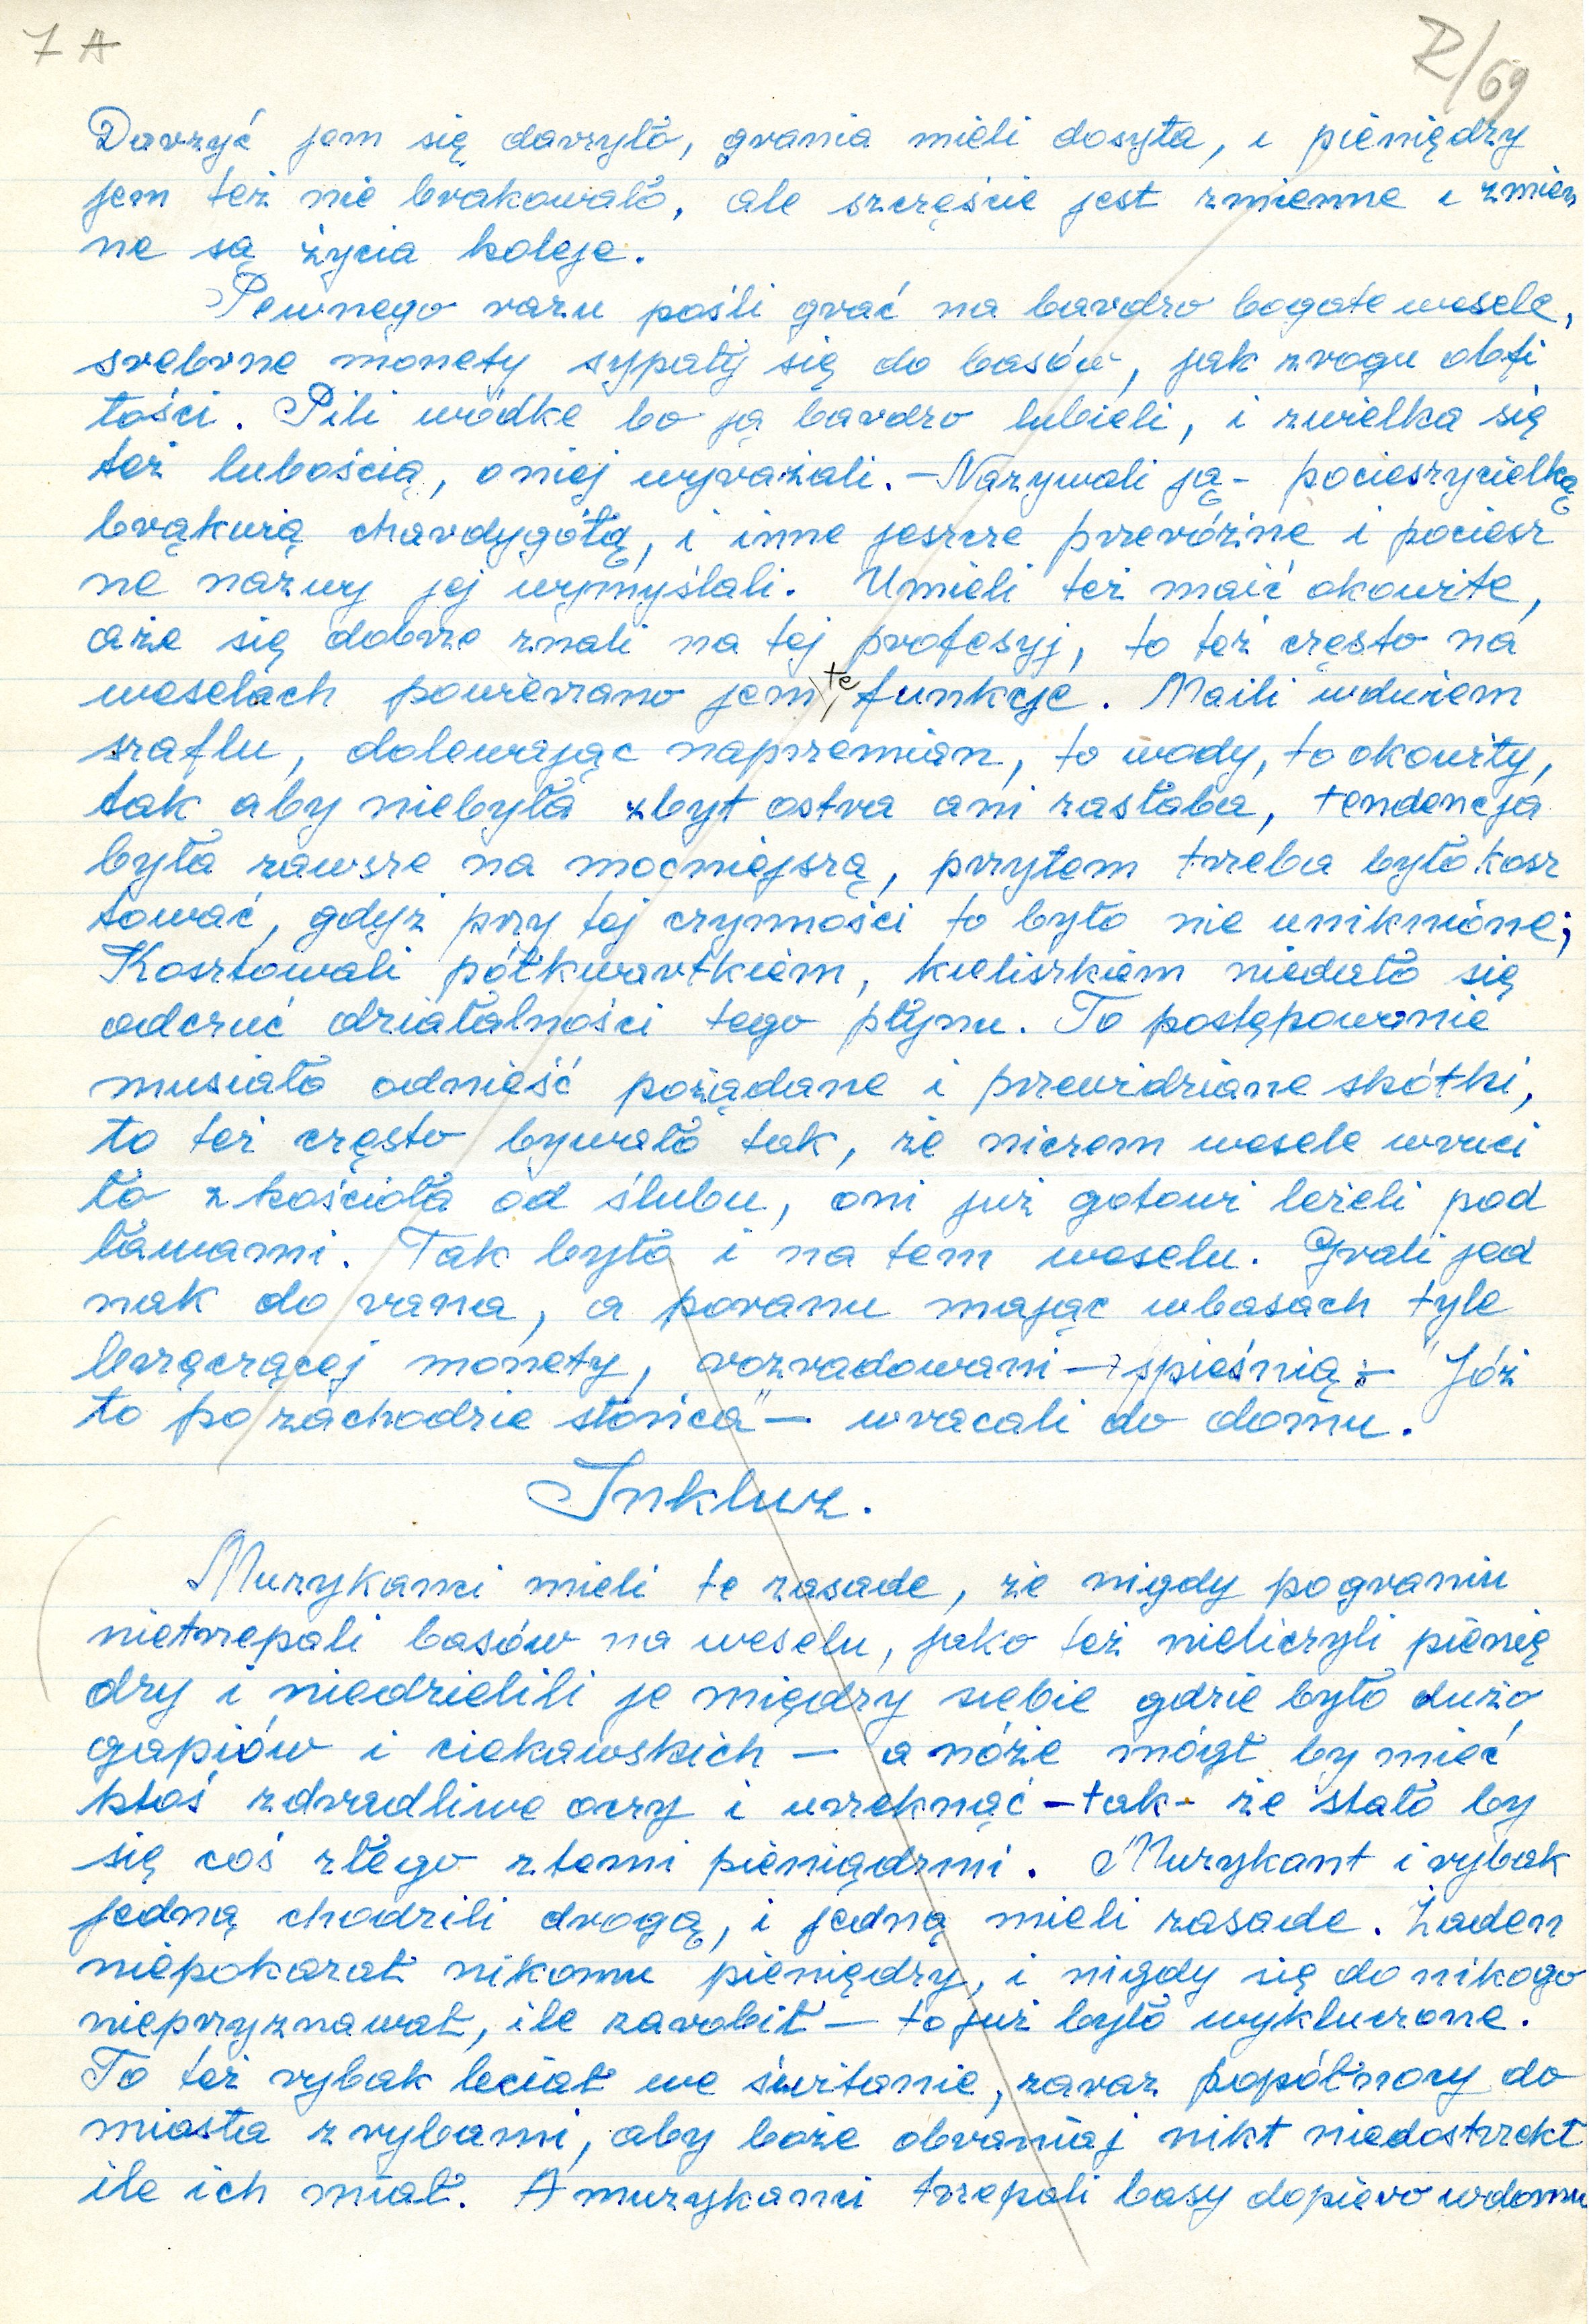 7 A
R/69
Darzyć jem się darzyło, grania mieli dosyta, i pieniędzy
jem też nie brakowało, ale szczęście jest zmienne i zmien
ne są życia koleje.
Pewnego razu pośli grać na bardzo bogate wesele,
srebrne monety sypały się do basów, jak zrogu obfi
tości. Pili wódke bo ją bardzo lubieli, i zwielka się
też lubością, oniej wyrażali. - Nazywali ją - pocieszycielką
brąkwią chardygółą, i inne jeszcze przeróżne i pociesz
ne nazwy jej wymyślali. Umieli też maić okowite,
aże się dobrze znali na tej profesyj, to też często na
weselach powierzano jem te funkcje. Maili wdużem
szaflu, dolewając naprzemian, to wody, to okowity,
tak aby niebyła zbyt ostra ani zasłaba, tendencja
była zawsze na mocniejszą, przytem trzeba było kosz
tować, gdyż przy tej czynności to było nie uniknióne;
Kosztowali półkwartkiem, kieliszkiem niedało się
odczuć działalności tego płynu. To postępowanie
musiało odnieść pożądane i przewidziane skótki,
to też często bywało tak, że niczem wesele wruci
ło zkościoła od ślubu, oni już gotowi leżeli pod
ławami. Tak było i na tem weselu. Grali jed
nak do rana, a poranu mając wbasach tyle
brzęczącej monety, rozradowani - spieśnią: - "Jóż
to po zachodzie słońca" - wracali do domu.
Inkluz.
Muzykanci mieli te zasade, że nigdy pograniu
nietrzepali basów na weselu, jako też nieliczyli pienię
dzy i niedzielili je między siebie gdzie było dużo
gapiów i ciekawskich - a nóże mógł by mieć
ktoś zdradliwe oczy i urzeknąć - tak - że stało by
się coś złego ztemi pieniądzmi. Muzykant i rybak
jedną chodzili drogą, i jedną mieli zasade. Żaden
niepokazał nikomu pieniędzy, i nigdy się do nikogo
nieprzyznawał, ile zarobił - to już było wykluczone.
To też rybak leciał we świtanie, zaraz popółnocy do
miasta zrybami, aby boże obraniaj nikt niedostrzekł
ile ich miał. A muzykanci trzepali basy dopiero wdomu